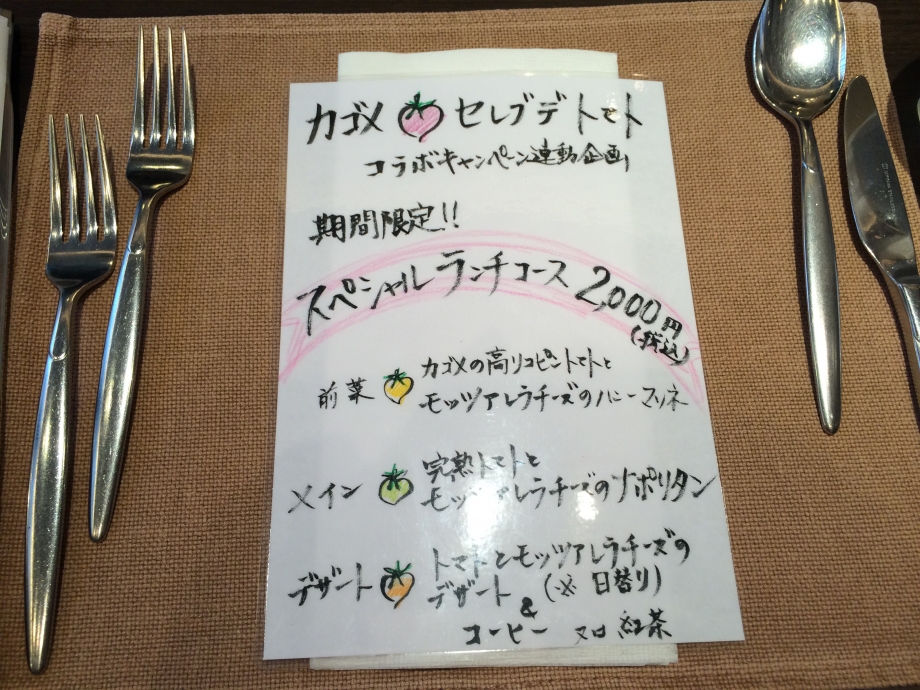 カゴメ セレブデトマト
コラボキャンペーン連動企画
期間限定!!
スペシャルランチコース 2,000円
(税込)
前菜 カゴメの高リコピントマトと
モッツァレラチーズのハニーマリネ
メイン 完熟トマトと
モッツァレラチーズのナポリタン
デザート トマトとモッツァレラチーズの
デザート (※ 日替り)
&
コーヒー 又は 紅茶